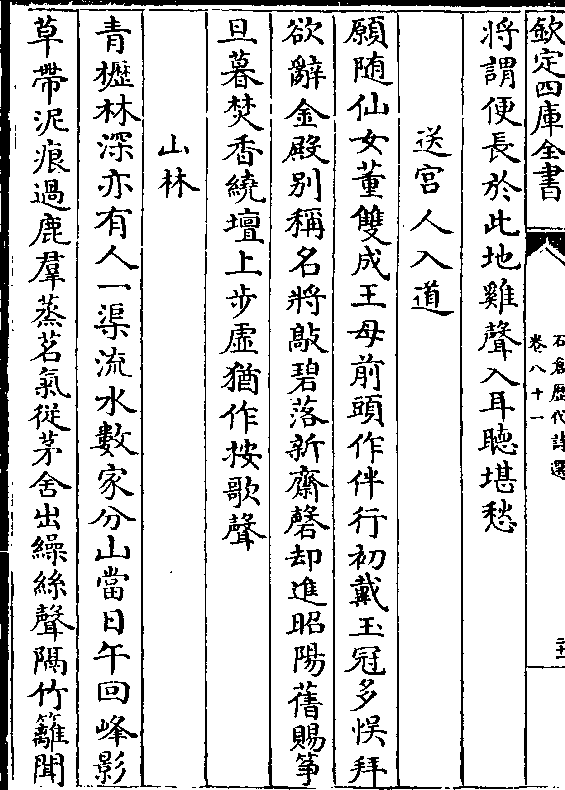 欽定四庫全書
石倉歷代詩選
卷八十一
將謂便長於此地雞聲入耳聽堪愁
送宮人入道
願隨仙女董雙成王母前頭作伴行初戴玉冠多悞拜
欲辭金殿别稱名將敲碧落新齋磬却進昭陽舊賜箏
旦暮焚香繞壇上步虛猶作按歌聲
山林
青櫪林深亦有人一渠流水數家分山當日午回峰影
草帶泥痕過鹿羣蒸茗氣從茅舍出繰絲聲隔竹籬聞